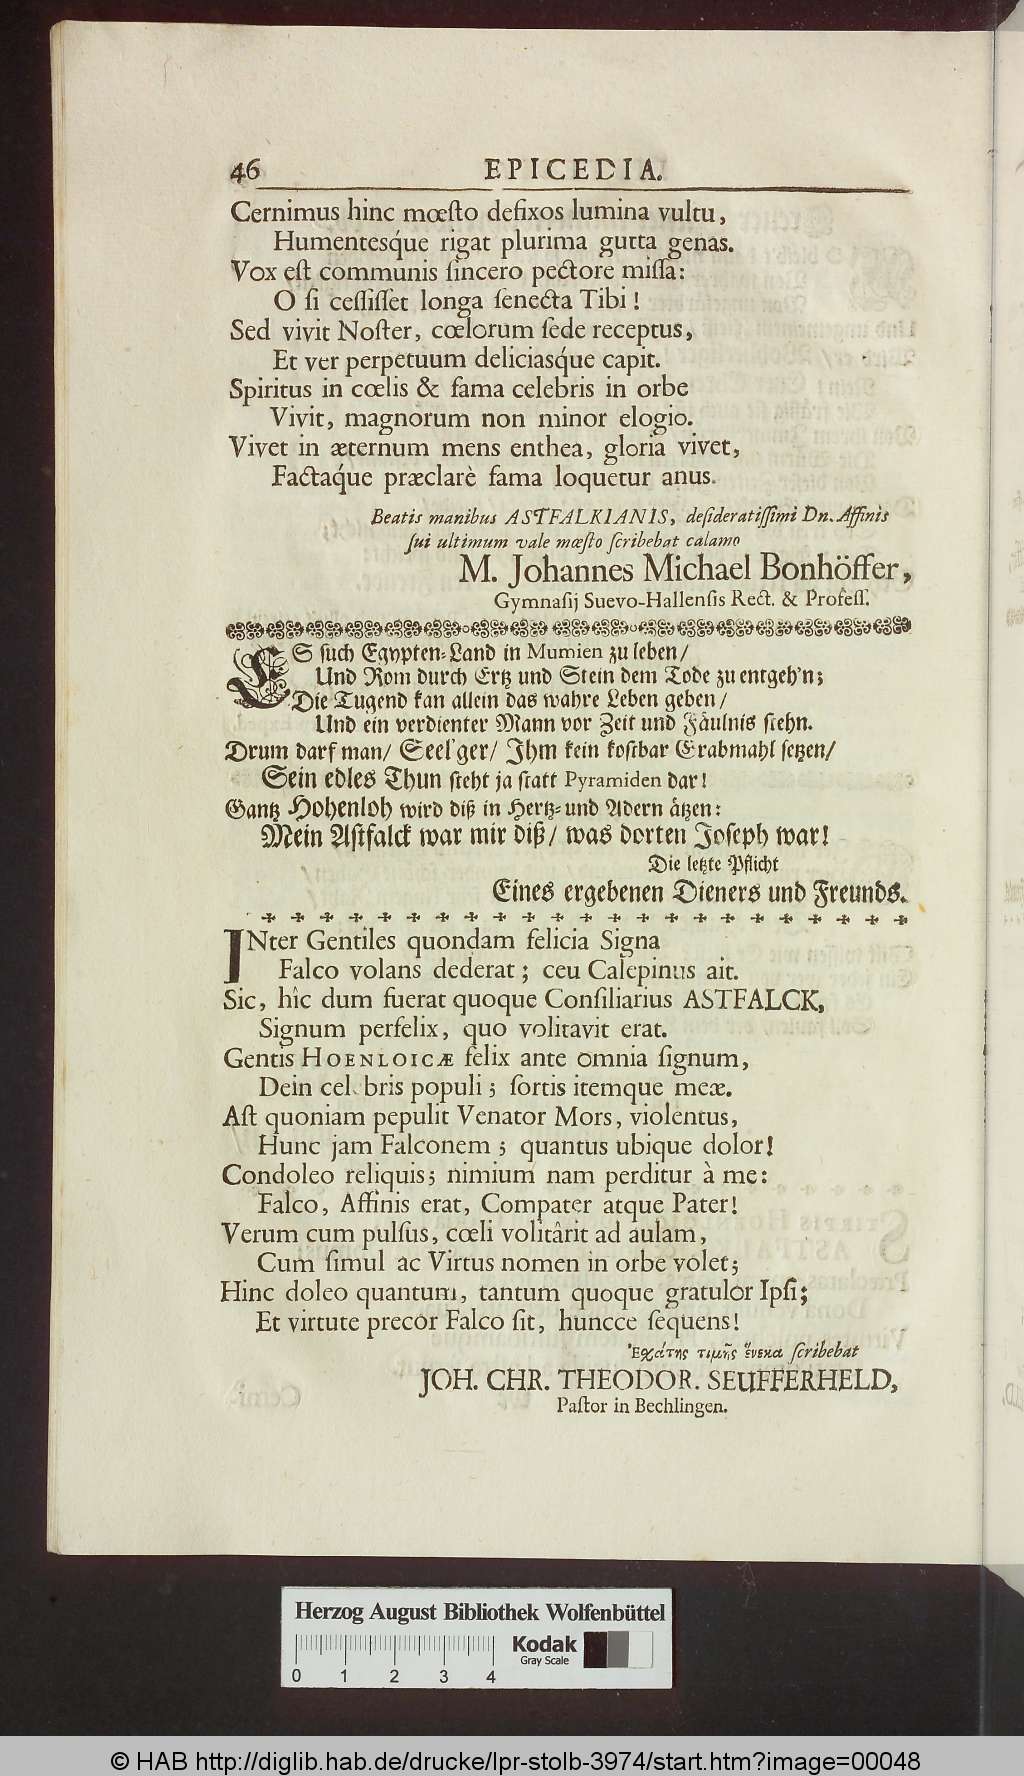 46 EPICEDIA.
Cernimus hinc mœſto defixos lumina vultu,
Humentesq́ue rigat plurima gutta genas.
Vox eſt communis ſincero pectore miſſa:
O ſi ceſſiſſet longa ſenecta Tibi!
Sed vivit Noſter, cœlorum ſede receptus,
Et ver perpetuum deliciasq́ue capit.
Spiritus in cœlis & fama celebris in orbe
Vivit, magnorum non minor elogio.
Vivet in æternum mens enthea, gloria vivet,
Factaq́ue præclarè fama loquetur anus.
Beatis manibus ASTFALKIANIS, deſideratiſſimi Dn. Affinis
ſui ultimum vale mœſto ſcribebat calamo
M. Johannes Michael Bonhöffer,
Gymnaſij Suevo-Hallenſis Rect. & Profeſſ.
ES ſuch Egypten-Land in Mumien zu leben/
Und Rom durch Ertz und Stein dem Tode zu entgeh'n;
Die Tugend kan allein das wahre Leben geben/
Und ein verdienter Mann vor Zeit und Fäulnis ſtehn.
Drum darf man/ Seel'ger/ Jhm kein koſtbar Grabmahl ſetzen/
Sein edles Thun ſteht ja ſtatt Pyramiden dar!
Gantz Hohenloh wird diß in Hertz- und Adern ätzen:
Mein Aſtfalck war mir diß/ was dorten Joſeph war!
Die letzte Pflicht
Eines ergebenen Dieners und Freunds.
INter Gentiles quondam felicia Signa
Falco volans dederat; ceu Calepinus ait.
Sic, hîc dum fuerat quoque Conſiliarius ASTFALCK,
Signum perfelix, quo volitavit erat.
Gentis HOENLOICÆ felix ante omnia ſignum,
Dein cel bris populi; ſortis itemque meæ.
Aſt quoniam pepulit Venator Mors, violentus,
Hunc jam Falconem; quantus ubique dolor!
Condoleo reliquis; nimium nam perditur à me:
Falco, Affinis erat, Compater atque Pater!
Verum cum pulſus, cœli volitârit ad aulam,
Cum ſimul ac Virtus nomen in orbe volet;
Hinc doleo quantum, tantum quoque gratulor Ipſi;
Et virtute precor Falco ſit, huncce ſequens!
Ἐχάτης τιμῆς ἕνεκα ſcribebat
JOH. CHR. THEODOR. SEUFFERHELD,
Paſtor in Bechlingen.
Herzog August Bibliothek Wolfenbüttel
Kodak
Gray Scale
0 1 2 3 4
© HAB http://diglib.hab.de/drucke/lpr-stolb-3974/start.htm?image=00048